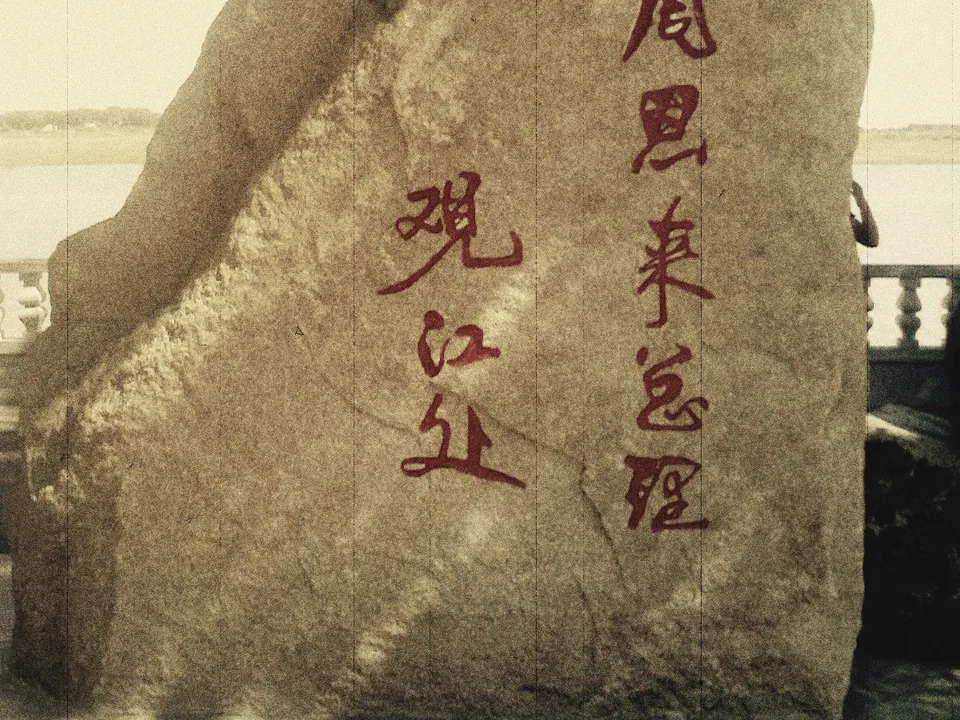 周恩来总理
观江处